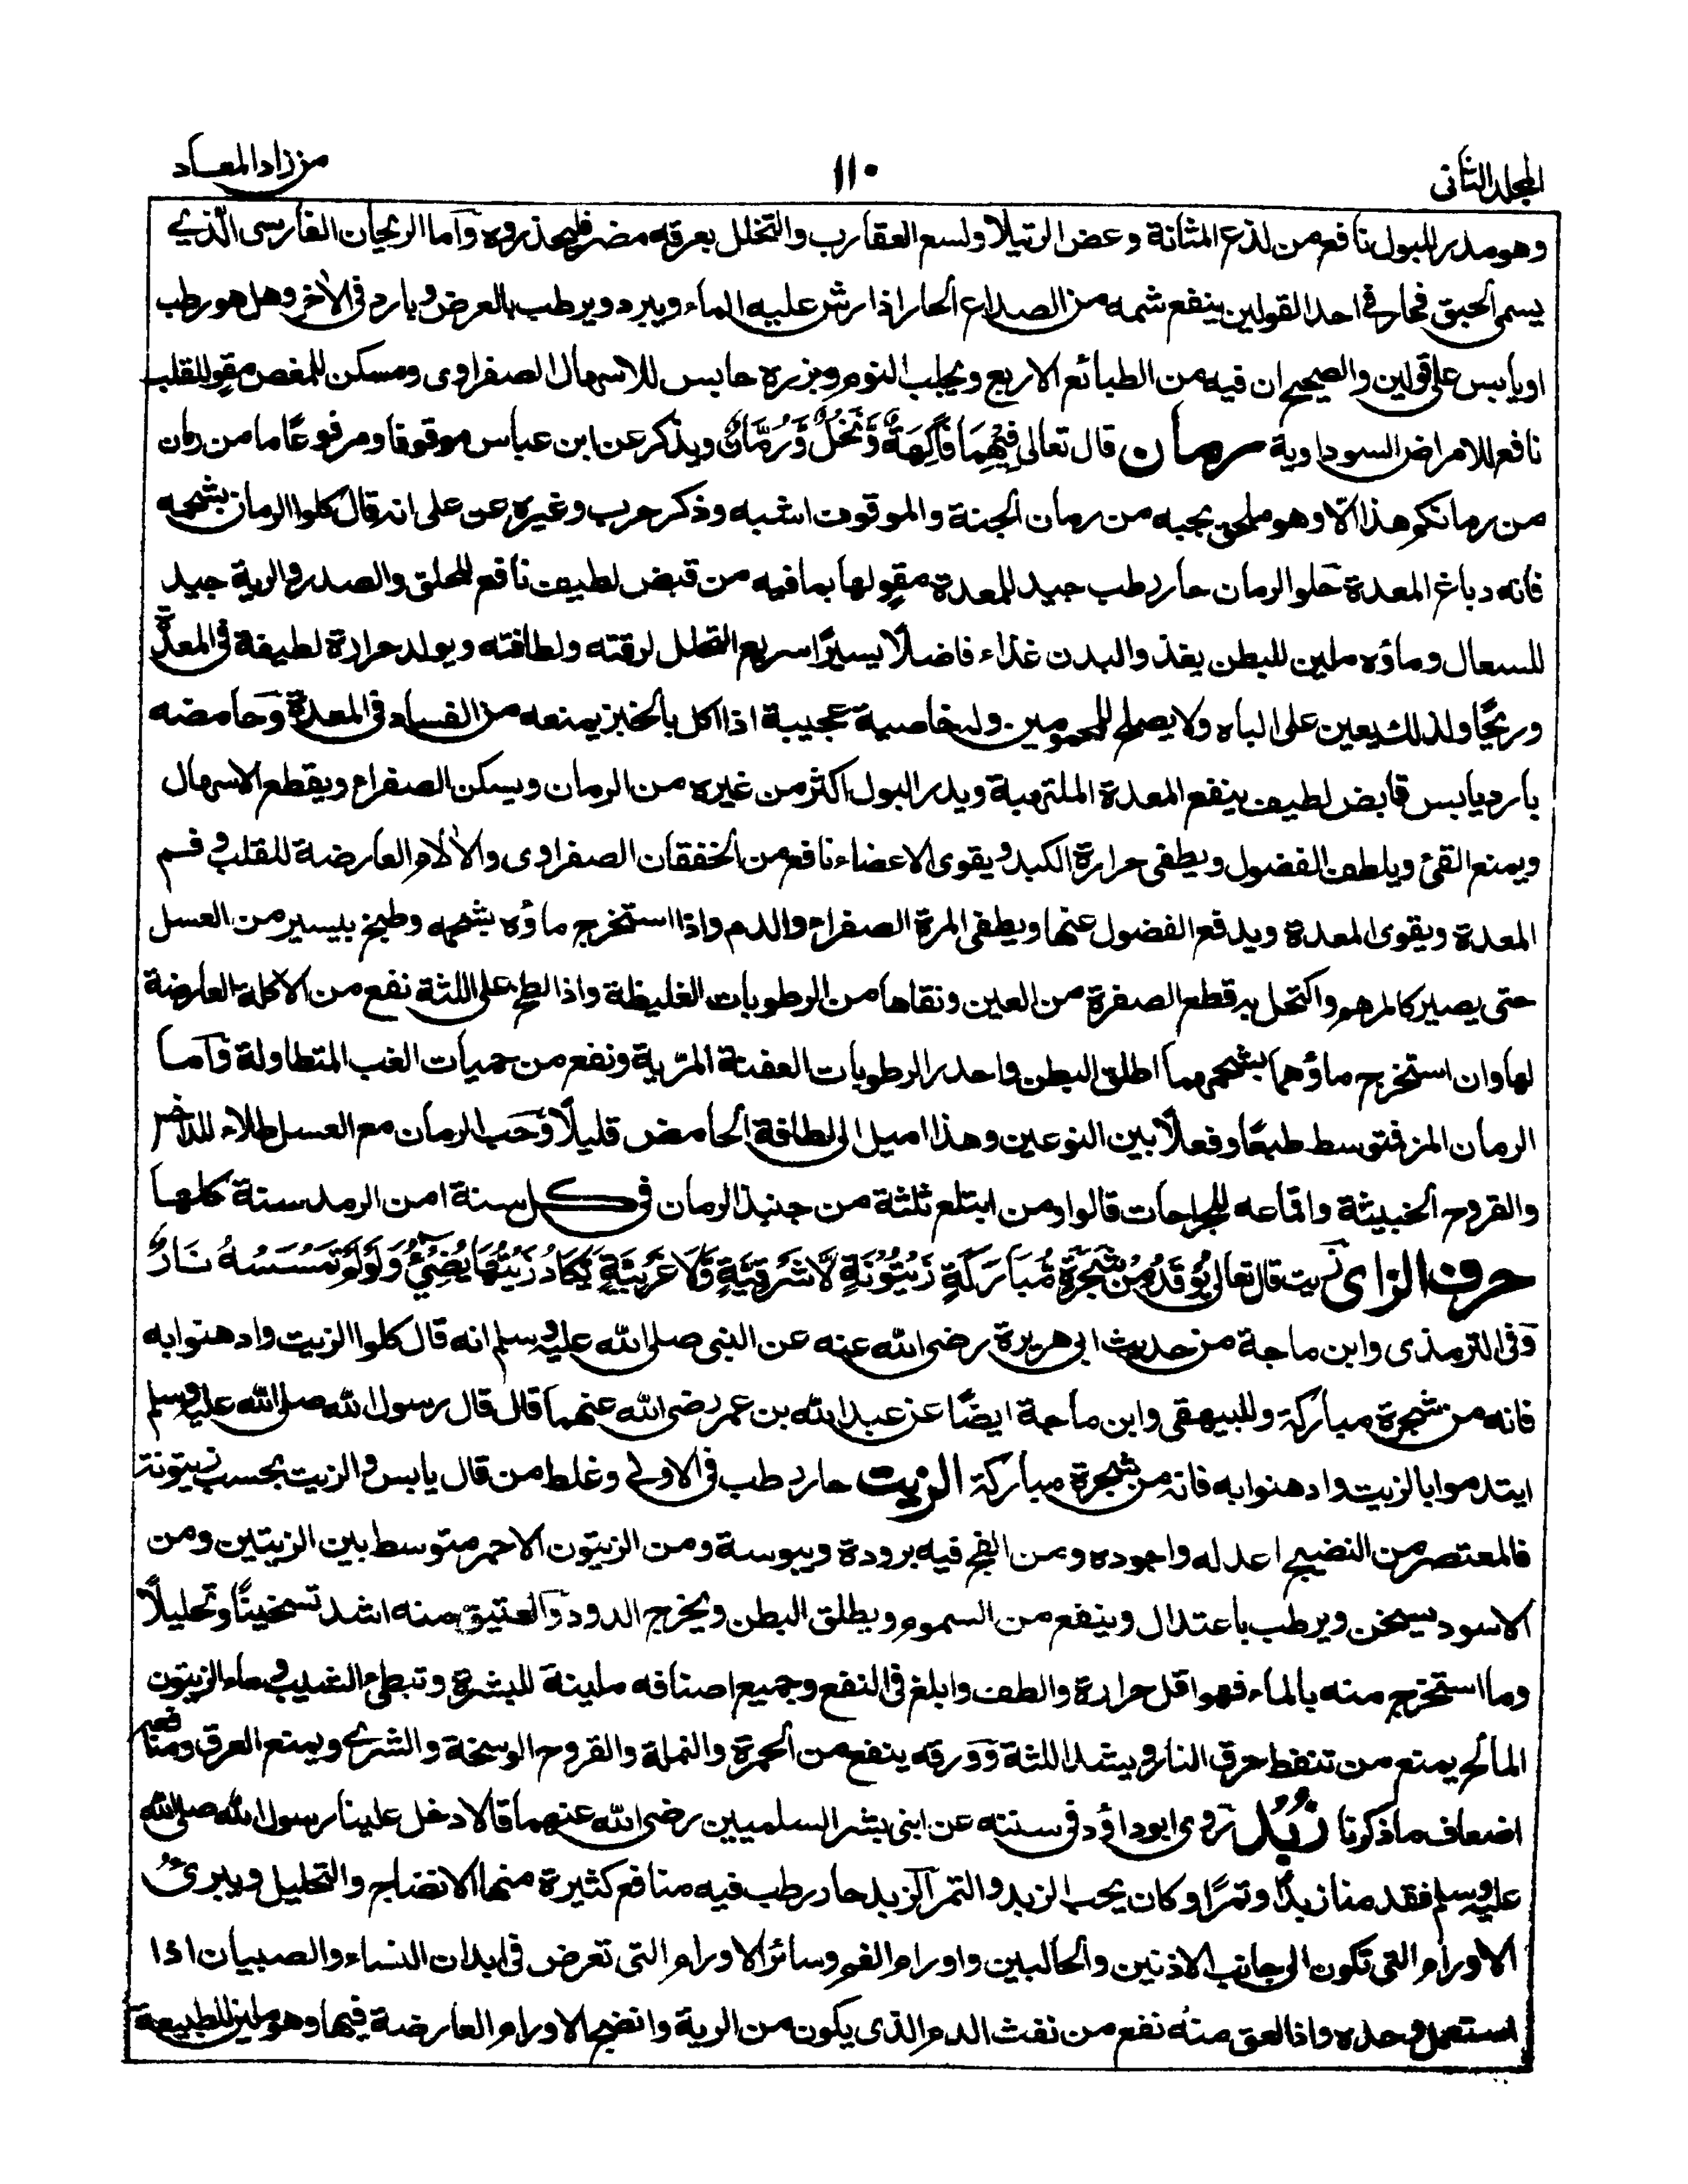 المجلد الثانى
١١٠
من زاد المعاد
وهو مدر للبول نافع من لذع المثانة وعض الرتيلا ولسع العقارب والتخلل بعرقه مضر فليحذروه وآما الريحان الفارسى الذي
يسمى الحبق فحار فى احد القولين ينفع شمه من الصداع الحار اذا رش عليه الماء ويبرد ويرطب بالعرض وبارد فى الآخر وهل هو رطب
او يابس على قولين والصحيح ان فيه من الطبائع الاربع ويجلب النوم وبزره حابس للاسهال الصفراوى ومسكن للمغص مقوٍ للقلب
نافع للامراض السوداوية رمان قال تعالى فِيْهِمَا فَاكِهَةٌ وَّنَخْلٌ وَّرُمَّانٌ ويذكر عن ابن عباس موقوفا ومرفوعًا ما من رمان
من رمانكم هذا الّا وهو ملحق بحبه من رمان الجنة والموقوف اشبه وذكر حرب وغيره عن على انه قال كلوا الرمان بشحمه
فانه دباغ المعدة حلو الرمان حار رطب جيد للمعدة مقوٍ لها بما فيه من قبض لطيف نافع للحلق والصدر والرية جيد
للسعال وماؤه ملين للبطن يغذ والبدن غذاء فاضلًا يسيرًا سريع التحلل لرقته ولطافته ويولد حرارة لطيفة فى المعدة
وريحًا ولذلك يعين على الباه ولا يصلح للمحمومين وله خاصية عجيبة اذا اكل بالخبز يمنعه من الفساد فى المعدة وحامضه
بارد يابس قابض لطيف ينفع المعدة الملتهبة ويدر البول اكثر من غيره من الرمان ويسكن الصفراء ويقطع الاسهال
ويمنع القئ ويلطف الفضول ويطفى حرارة الكبد ويقوى الاعضاء نافع من الخفقان الصفراوى والآلام العارضة للقلب وفم
المعدة ويقوى المعدة ويدفع الفضول عنها ويطفى المرة الصفراء والدم واذا استخرج ماؤه بشحمه وطبخ بيسير من العسل
حتى يصير كالمرهم واكتحل به قطع الصفرة من العين ونقاها من الرطوبات الغليظة واذا لطخ على اللثة نفع من الاكلة العارضة
لها وان استخرج ماؤهما بشحمهما اطلق البطن واحدر الرطوبات العفنة المرّية ونفع من حميات الغب المتطاولة وآما
الرمان المز فمتوسط طبعًا وفعلًا بين النوعين وهذا اميل الى لطافة الحامض قليلًا وحب الرمان مع العسل طلاء للداحس
والقروح الخبيثة واقماعه للجراحات قالوا ومن ابتلع ثلثة من جنبذ الرمان فى كل سنة امن الرمد سنة كلها
حرف الزاى زيت قال تعالى يُوْقَدُ مِنْ شَجَرَةٍ مُّبَارَكَةٍ زَيْتُوْنَةٍ لَّا شَرْقِيَّةٍ وَّلَا غَرْبِيَّةٍ يَّكَادُ زَيْتُهَا يُضِيْءُ وَلَوْ لَمْ تَمْسَسْهُ نَارٌ
وفى الترمذى وابن ماجة من حديث ابى هريرة رضى الله عنه عن النبى صلى الله عليه وسلم انه قال كلوا الزيت وادهنوا به
فانه من شجرة مباركة وللبيهقى وابن ماجة ايضًا عن عبد الله بن عمر رضى الله عنهما قال قال رسول الله صلى الله عليه وسلم
ايتدموا بالزيت وادهنوا به فانه من شجرة مباركة الزيت حار رطب فى الاولى وغلط من قال يابس والزيت بحسب زيتونته
فالمعتصر من النضيج اعدله واجوده ومن الفج فيه برودة ويبوسة ومن الزيتون الاحمر متوسط بين الزيتين ومن
الاسود يسخن ويرطب باعتدال وينفع من السموم ويطلق البطن ويخرج الدود والعتيق منه اشد تسخينًا وتحليلًا
وما استخرج منه بالماء فهو اقل حرارة والطف وابلغ فى النفع وجميع اصنافه ملينة للبشرة وتبطى الشيب وماء الزيتون
المالح يمنع من تنفط حرق النار ويشد اللثة وورقه ينفع من الحمرة والنملة والقروح الوسخة والشرى ويمنع العرق ومنافعه
اضعاف ما ذكرنا زُبْد روى ابو داؤد فى سننه عن ابنى بشر السلميين رضى الله عنهما قالا دخل علينا رسول الله صلى الله
عليه وسلم فقدمنا زبدًا وتمرًا وكان يحب الزبد والتمر الزبد حار رطب فيه منافع كثيرة منها الانضاج والتحليل ويبرئ
الاورام التى تكون الى جانب الاذنين والحالبين واورام الفم وسائر الاورام التى تعرض فى ابدان النساء والصبيان اذا
استعمل وحده واذا لعق منه نفع من نفث الدم الذى يكون من الرية وانضج الاورام العارضة فيها وهو ملين للطبيعة